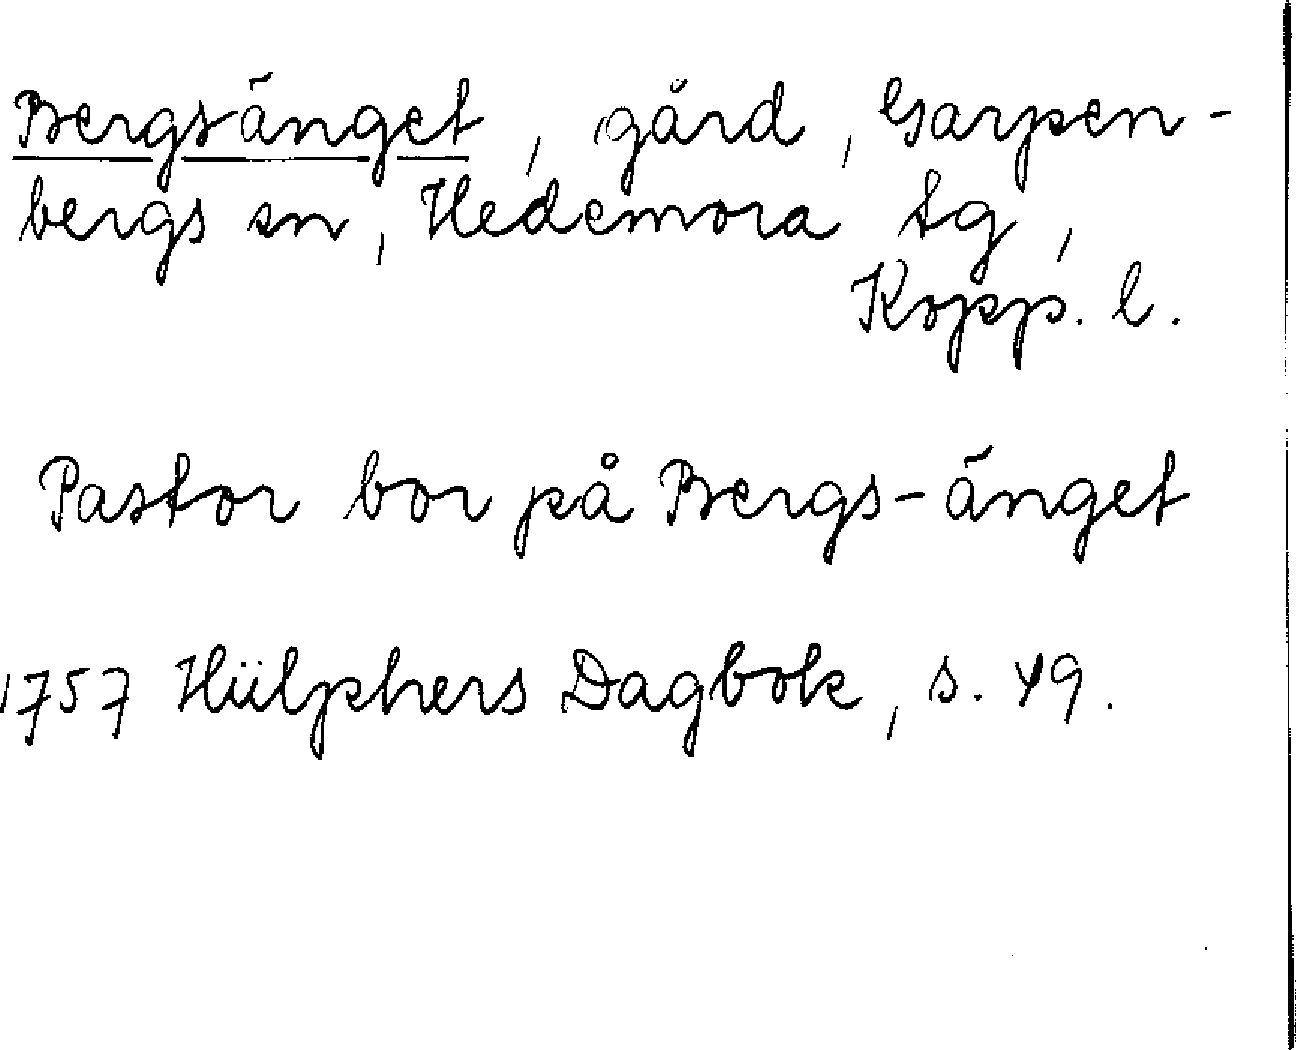 Bergsänget, gård, Garpen-
bergs sn, Hedemora tg,
Kopp. l.
Pastor bor på Bergs-änget
1757 Hülphers Dagbok, s. 49.